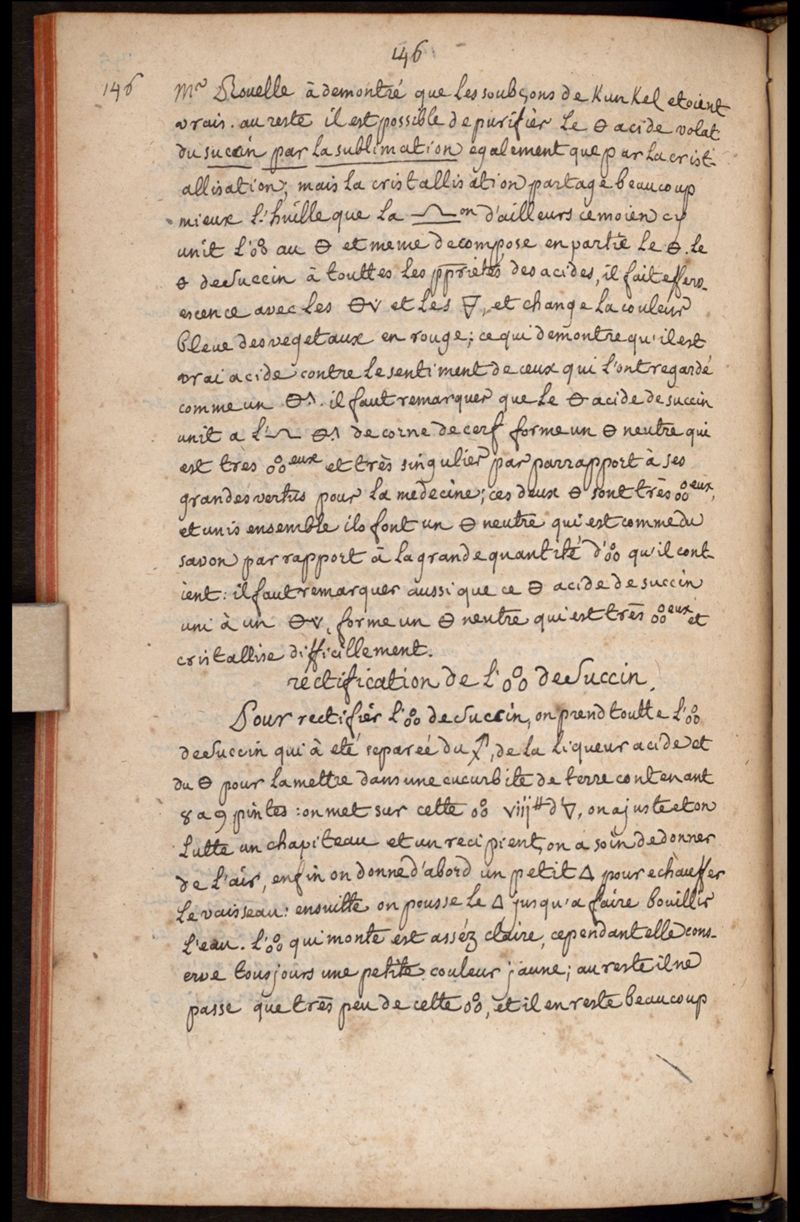 146
146 Mr Rouelle à demontré que les soubçons de Kunkel etoient
vrais. au reste il est possible de purifiér le 🜔 acide volat
du succin par la sublimation également que par la crist-
allisation; mais la cristallisation partage beaucoup
mieux l'huille que la on d'ailleurs ce moien cy
unit l'o°o au 🜔 et meme decompose en partie le 🜔. le
🜔 de Succin à touttes les pprietés des acides, il fait efferv-
escence avec les 🜔v et les 🜃, et change la couleur
bleue des vegetaux en rouge; ce qui demontre qu'il est
vrai acide contre le sentiment de ceux qui l'ont regardé
comme un 🜔^. il faut remarquer que le 🜔 acide de succin
unit a l' 🜔^ de corne de cerf forme un 🜔 neutre qui
est très o°o eux et très singulier par parrapport à ses
grandes vertus pour la medecine; ces deux 🜔 sont très o°o eux,
et unis ensemble ils font un 🜔 neutre qui est comme du
savon par rapport à la grande quantité d'o°o qu'il cont
ient: il faut remarquer aussi que ce 🜔 acide de succin
uni à un 🜔v, forme un 🜔 neutre qui est très o°o eux et
cristallise difficillement.
réctification de l'o°o de Succin.
Pour rectifiér l'o°o de Succin, on prend toutte l'o°o
de Succin qui à eté separéé du, de la liqueur acide et
du 🜔 pour la mettre dans une cucurbite de terre contenant
8 a 9 pintes: on met sur cette o°o viij ℔ d'🜄, on ajuste et on
lutte un chapiteau et un recipient, on a soin de donner
de l'air, enfin on donne d'abord un petit 🜂 pour echauffer
le vaisseau: ensuitte on pousse le 🜂 jusqu'a faire bouillir
l'eau. l'o°o qui monte est asséz claire, cependant elle cons-
erve tousjours une petite couleur jaune; au reste il ne
passe que très peu de cette o°o, et il en reste beaucoup